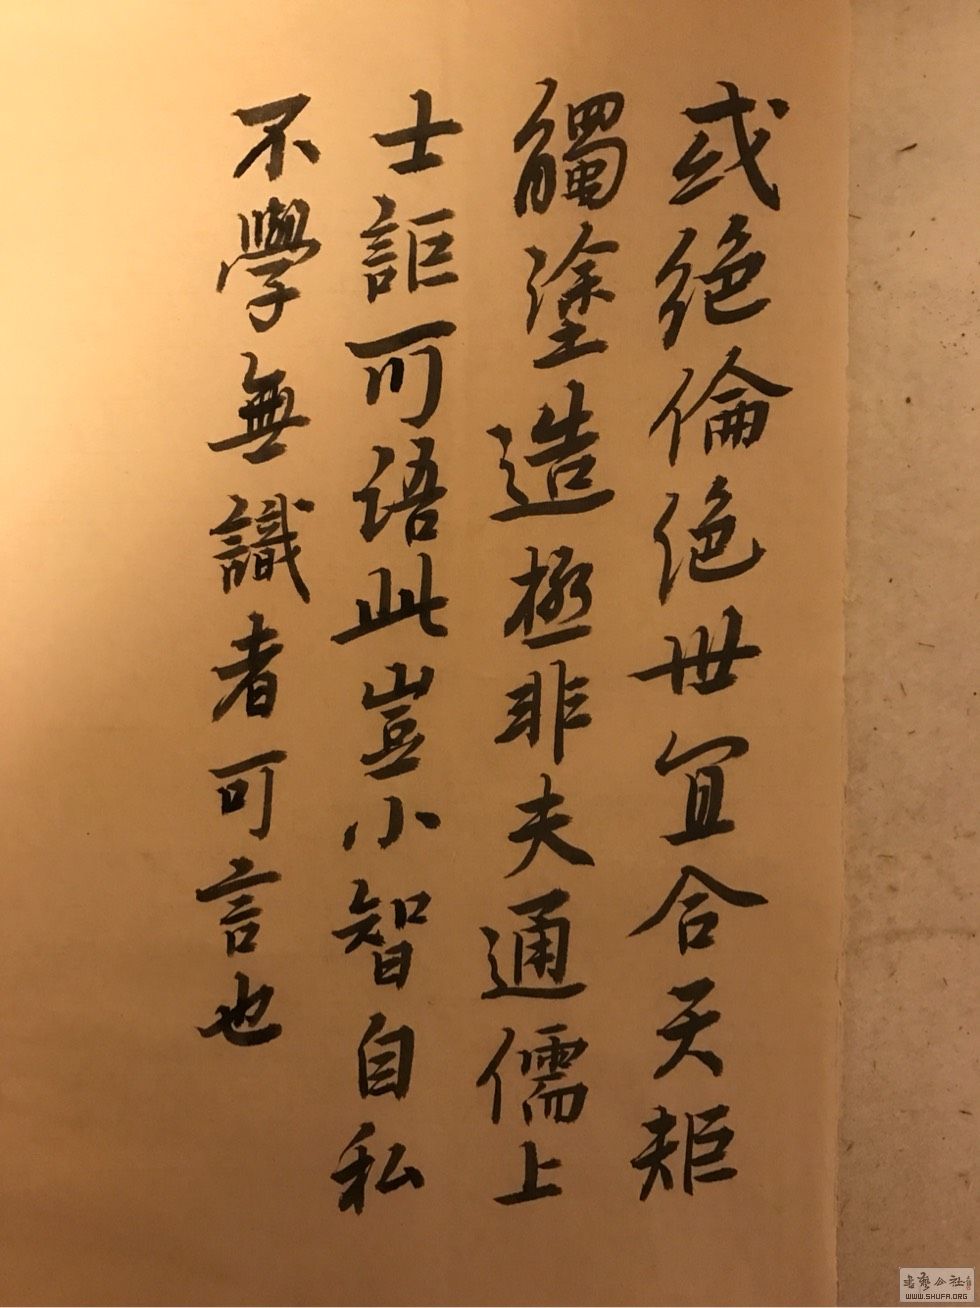 或绝倫绝世冝合天矩
觸塗造極非夫通儒上
士詎可语此豈小智自私
不學無識者可言也
书艺公社
WWW.SHUFA.ORG